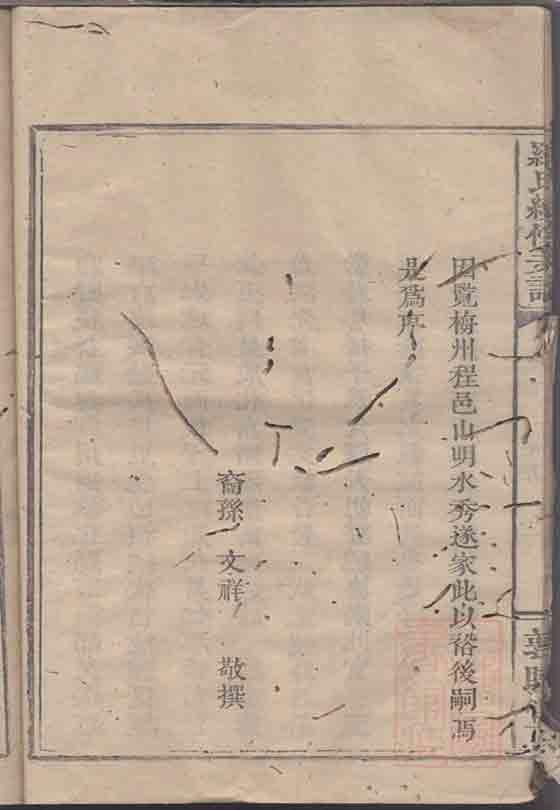 羅氏續修支譜
因覽梅州程邑山明水秀遂家此以裕後嗣焉
是爲序
裔孫 文祥 敬撰